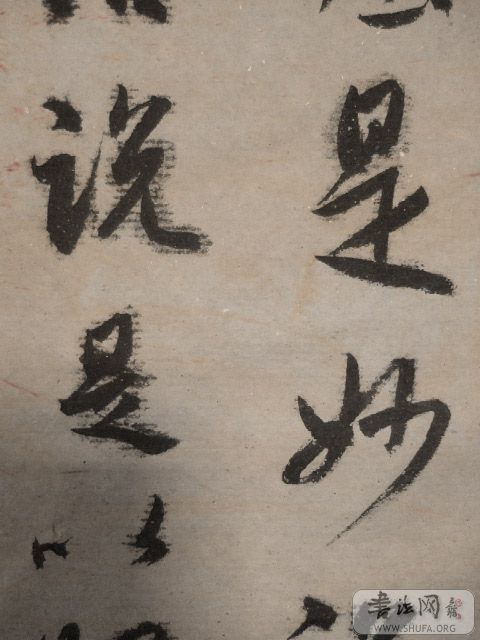 是妙
说是以
书法网
WWW.SHUFA.ORG